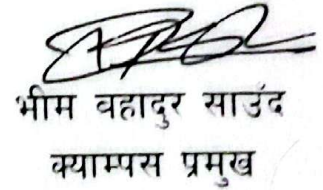 भीम बहादुर साउंद
क्याम्पस प्रमुख